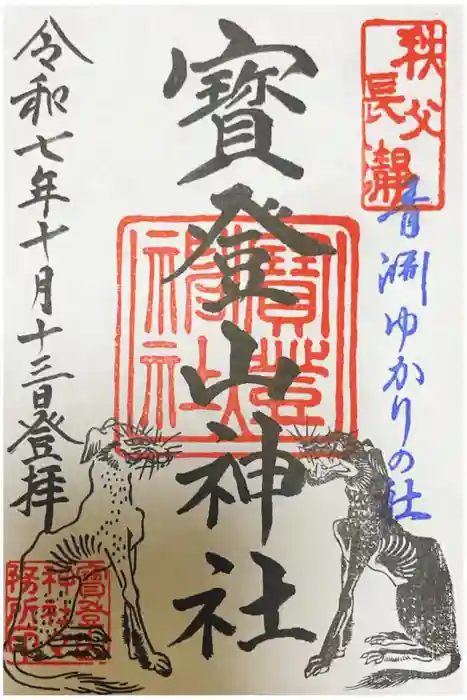 秩父
長瀞
青淵ゆかりの社
寳登山神社
寳登山神社
令和七年十月十三日登拝
寳登山
神社社
務所印